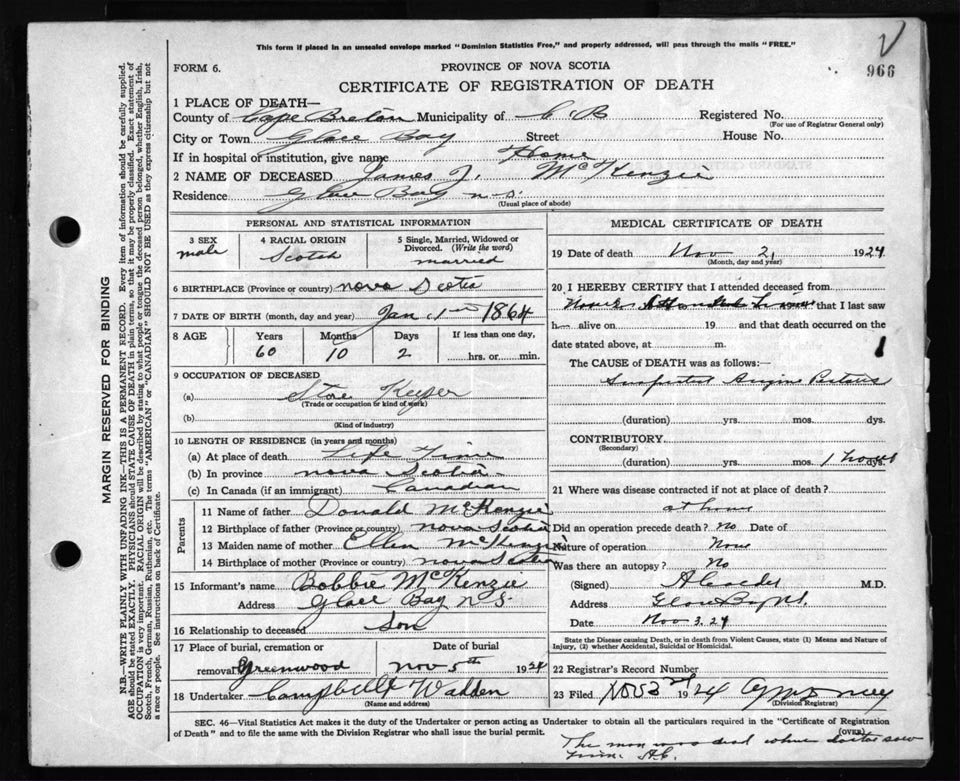 This form if placed in an unsealed envelope marked "Dominion Statistics Free," and properly addressed, will pass through the mails "FREE."
966
FORM 6.
PROVINCE OF NOVA SCOTIA
CERTIFICATE OF REGISTRATION OF DEATH
1 PLACE OF DEATH—
County of Cape Breton Municipality of C B Registered No.
(For use of Registrar General only)
City or Town Glace Bay Street House No.
If in hospital or institution, give name Home
2 NAME OF DECEASED James J. McKenzie
Residence Glace Bay N S.
(Usual place of abode)
PERSONAL AND STATISTICAL INFORMATION
3 SEX male
4 RACIAL ORIGIN Scotch
5 Single, Married, Widowed or Divorced. (Write the word) married
6 BIRTHPLACE (Province or country) Nova Scotia
7 DATE OF BIRTH (month, day and year) Jan 1st 1864
8 AGE Years Months Days If less than one day,
60 10 2 hrs. or min.
9 OCCUPATION OF DECEASED
(a) Store Keeper
(Trade or occupation or kind of work)
(b)
(Kind of industry)
10 LENGTH OF RESIDENCE (in years and months)
(a) At place of death Life Time
(b) In province Nova Scotia
(c) In Canada (if an immigrant) Canadian
Parents
11 Name of father Donald McKenzie
12 Birthplace of father (Province or country) Nova Scotia
13 Maiden name of mother Ellen McKenzie
14 Birthplace of mother (Province or country) Nova Scotia
15 Informant's name Bobbie McKenzie
Address Glace Bay N S
16 Relationship to deceased Son
17 Place of burial, cremation or Date of burial
removal Greenwood Nov 5th 1924
18 Undertaker Campbell & Wadden
(Name and address)
MEDICAL CERTIFICATE OF DEATH
19 Date of death Nov 2, 1924
(Month, day and year)
20 I HEREBY CERTIFY that I attended deceased from
to that I last saw
h alive on 19 and that death occurred on the
date stated above, at m.
1
The CAUSE of DEATH was as follows:
Suspected Angina Pectoris
(duration) yrs. mos. dys.
CONTRIBUTORY
(Secondary)
(duration) yrs. mos. 1 dys.
21 Where was disease contracted if not at place of death?
at home
Did an operation precede death? No Date of
Nature of operation None
Was there an autopsy? No
(Signed) M.D.
Address Glace Bay N.S.
Date Nov 3. 24
State the Disease causing Death, or in death from Violent Causes, state (1) Means and Nature of
Injury, (2) whether Accidental, Suicidal or Homicidal.
22 Registrar's Record Number
23 Filed Nov 3rd 1924
(Division Registrar)
SEC. 46—Vital Statistics Act makes it the duty of the Undertaker or person acting as Undertaker to obtain all the particulars required in the "Certificate of Registration
of Death" and to file the same with the Division Registrar who shall issue the burial permit.
(OVER)
The man was dead when doctor saw
him. A.C.
MARGIN RESERVED FOR BINDING
N.B.—WRITE PLAINLY WITH UNFADING INK—THIS IS A PERMANENT RECORD. Every item of information should be carefully supplied.
AGE should be stated EXACTLY. PHYSICIANS should STATE CAUSE OF DEATH in plain terms, so that it may be properly classified. Exact statement of
OCCUPATION is very important. RACIAL ORIGIN will be described by stating to what people or tongue the deceased person belonged, whether English, Irish,
Scotch, French, German, Russian, Ruthenian, etc. The terms "AMERICAN" or "CANADIAN" SHOULD NOT BE USED as they express citizenship but not
a race or people. See instructions on back of Certificate.